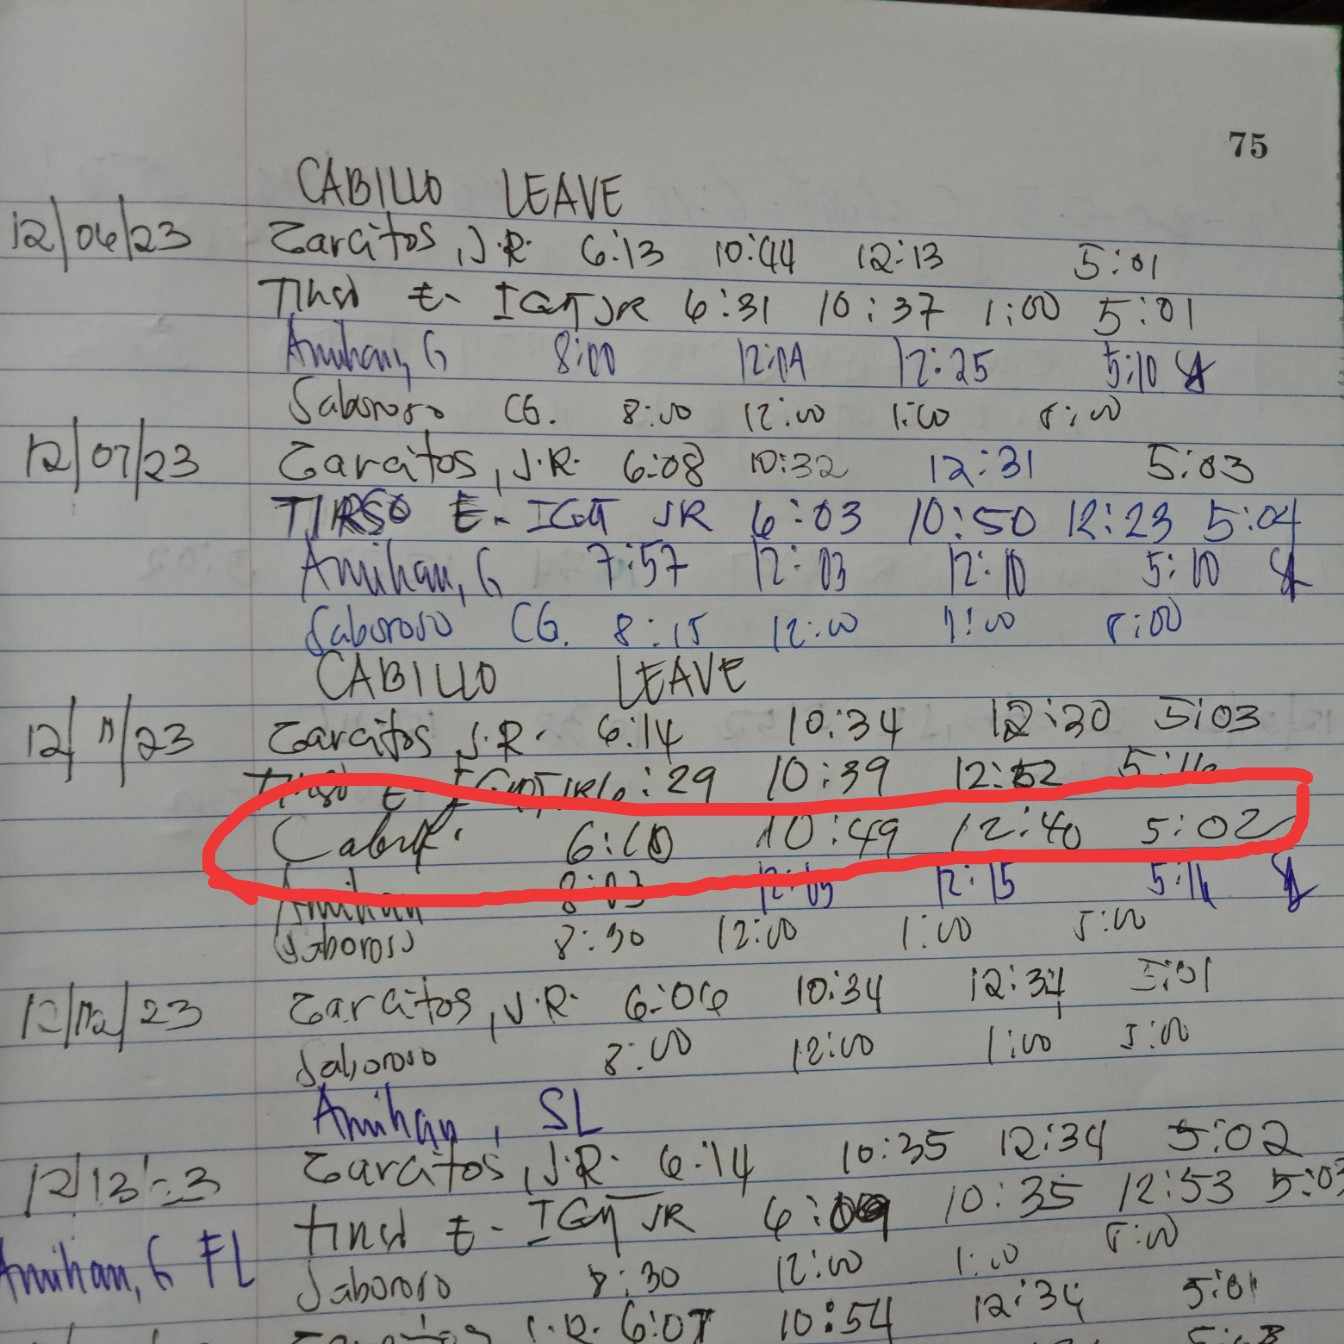 75
CABILLO LEAVE
12/06/23 Zarcitos, J.R. 6:13 10:44 12:13 5:01
E- IGOT JR 6:31 10:37 1:00 5:01
Amihan, G 8:00 12:04 12:25 5:10
Saboroso CG. 8:00 12:00 1:00 5:00
12/07/23 Zarcitos, J.R. 6:08 10:32 12:31 5:03
TIRSO E- IGOT JR 6:03 10:50 12:23 5:04
Amihan, G 7:57 12:03 12:10 5:10
Saboroso CG. 8:15 12:00 1:00 5:00
CABILLO LEAVE
12/11/23 Zarcitos J.R. 6:14 10:34 12:30 5:03
Tirso E- IGOT JR 6:29 10:39 12:52 5:16
10:49 12:40 5:02
Amihan 8:03 12:09 12:15
Saboroso 8:30 12:00 1:00 5:00
12/12/23 Zarcitos, J.R. 6:06 10:34 12:34 5:01
Saboroso 8:00 12:00 1:00 5:00
Amihan, SL
Zarcitos, J.R. 6:14 10:35 12:34 5:02
E- IGOT JR 10:35 12:53
Amihan, G FL
Saboroso 8:30 12:00 1:00 5:00
J.R. 6:07 10:54 12:34 5:01